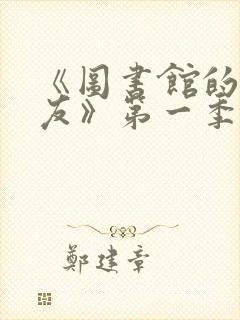 《圖書館的
友》第一季
鄭建章